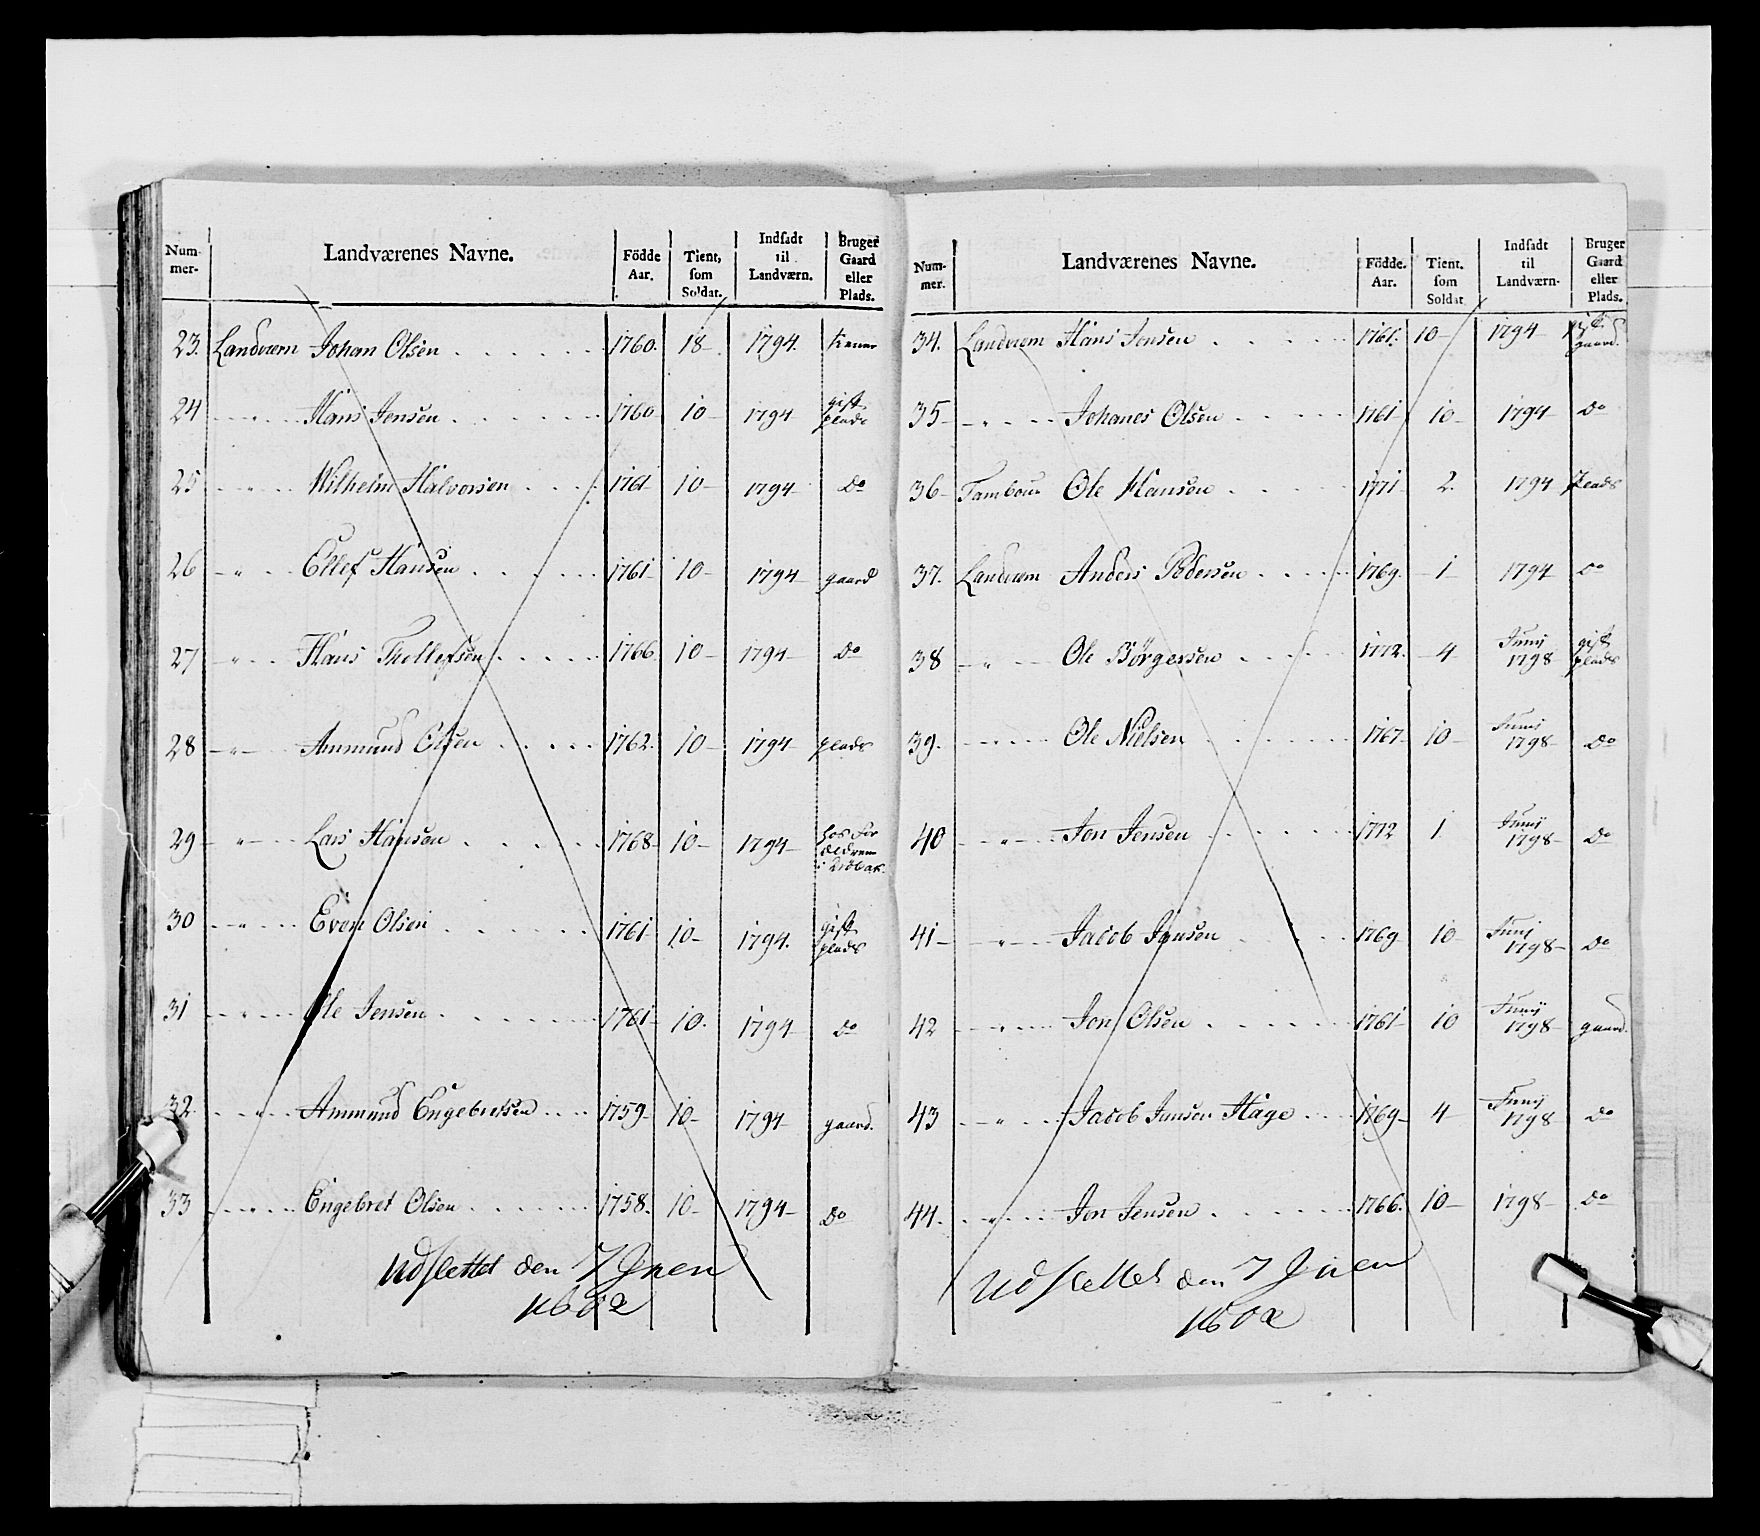 Num-
mer-
Landværenes Navne.
Födde
Aar.
Tient,
som
Soldat.
Indsadt
til
Landværn.
Bruger
Gaard
eller
Plads.
23. Landværn Johan Olsen 1760. 18 1794. tiener
24 Hans Jensen 1760 10 1794 gift plads
25 Wilhelm Halvorsen 1761 10 1794 Do
26 Ellef Hansen 1761 10 1794 gaard
27 Hans Thollefsen 1766 10 1794 Do
28 Ammund Olsen 1762. 10 1794 plads
29 Lars Hansen 1768 10 1794 hos For ældrene i
30 Even Olsen 1761 10 1794. gift plads
31 Ole Jensen 1761 10. 1794 Do
32. Ammund Engebretsen 1759 10 1794 gaard.
33 Engebret Olsen 1758. 10 1794 Do
Udslettet den 7 Juen
1802
Num-
mer.
Landværenes Navne.
Födde.
Aar.
Tient.
som
Soldat
Indsadt
til
Landværn-
Bruger
Gaard
eller
Plads.
34. Landværn Hans Jensen 1761. 10 1794 gift gaard.
35 Johanes Olsen 1761 10 1794 Do
36 Tambour Ole Hansen 1771 2. 1794 Plads
37. Landværn Anders Pedersen 1769. 1 1794 Do
38 Ole Börgersen 1772. 4 Junij 1798 gift plads
39. Ole Nielsen 1767 10 Junij 1798 Do
40 Jon Jensen 1772 1 Junij 1798 Do
41 Jacob Jansen 1769 10 Junij 1798 Do
42 Jon Olsen 1761 10 Junij 1798 gaard.
43 Jacob Jansen Hage 1769 4 Junij 1798 Do
44. Jon Jensen 1766. 10 1798 Do
Udslettet den 7 Juen
1802